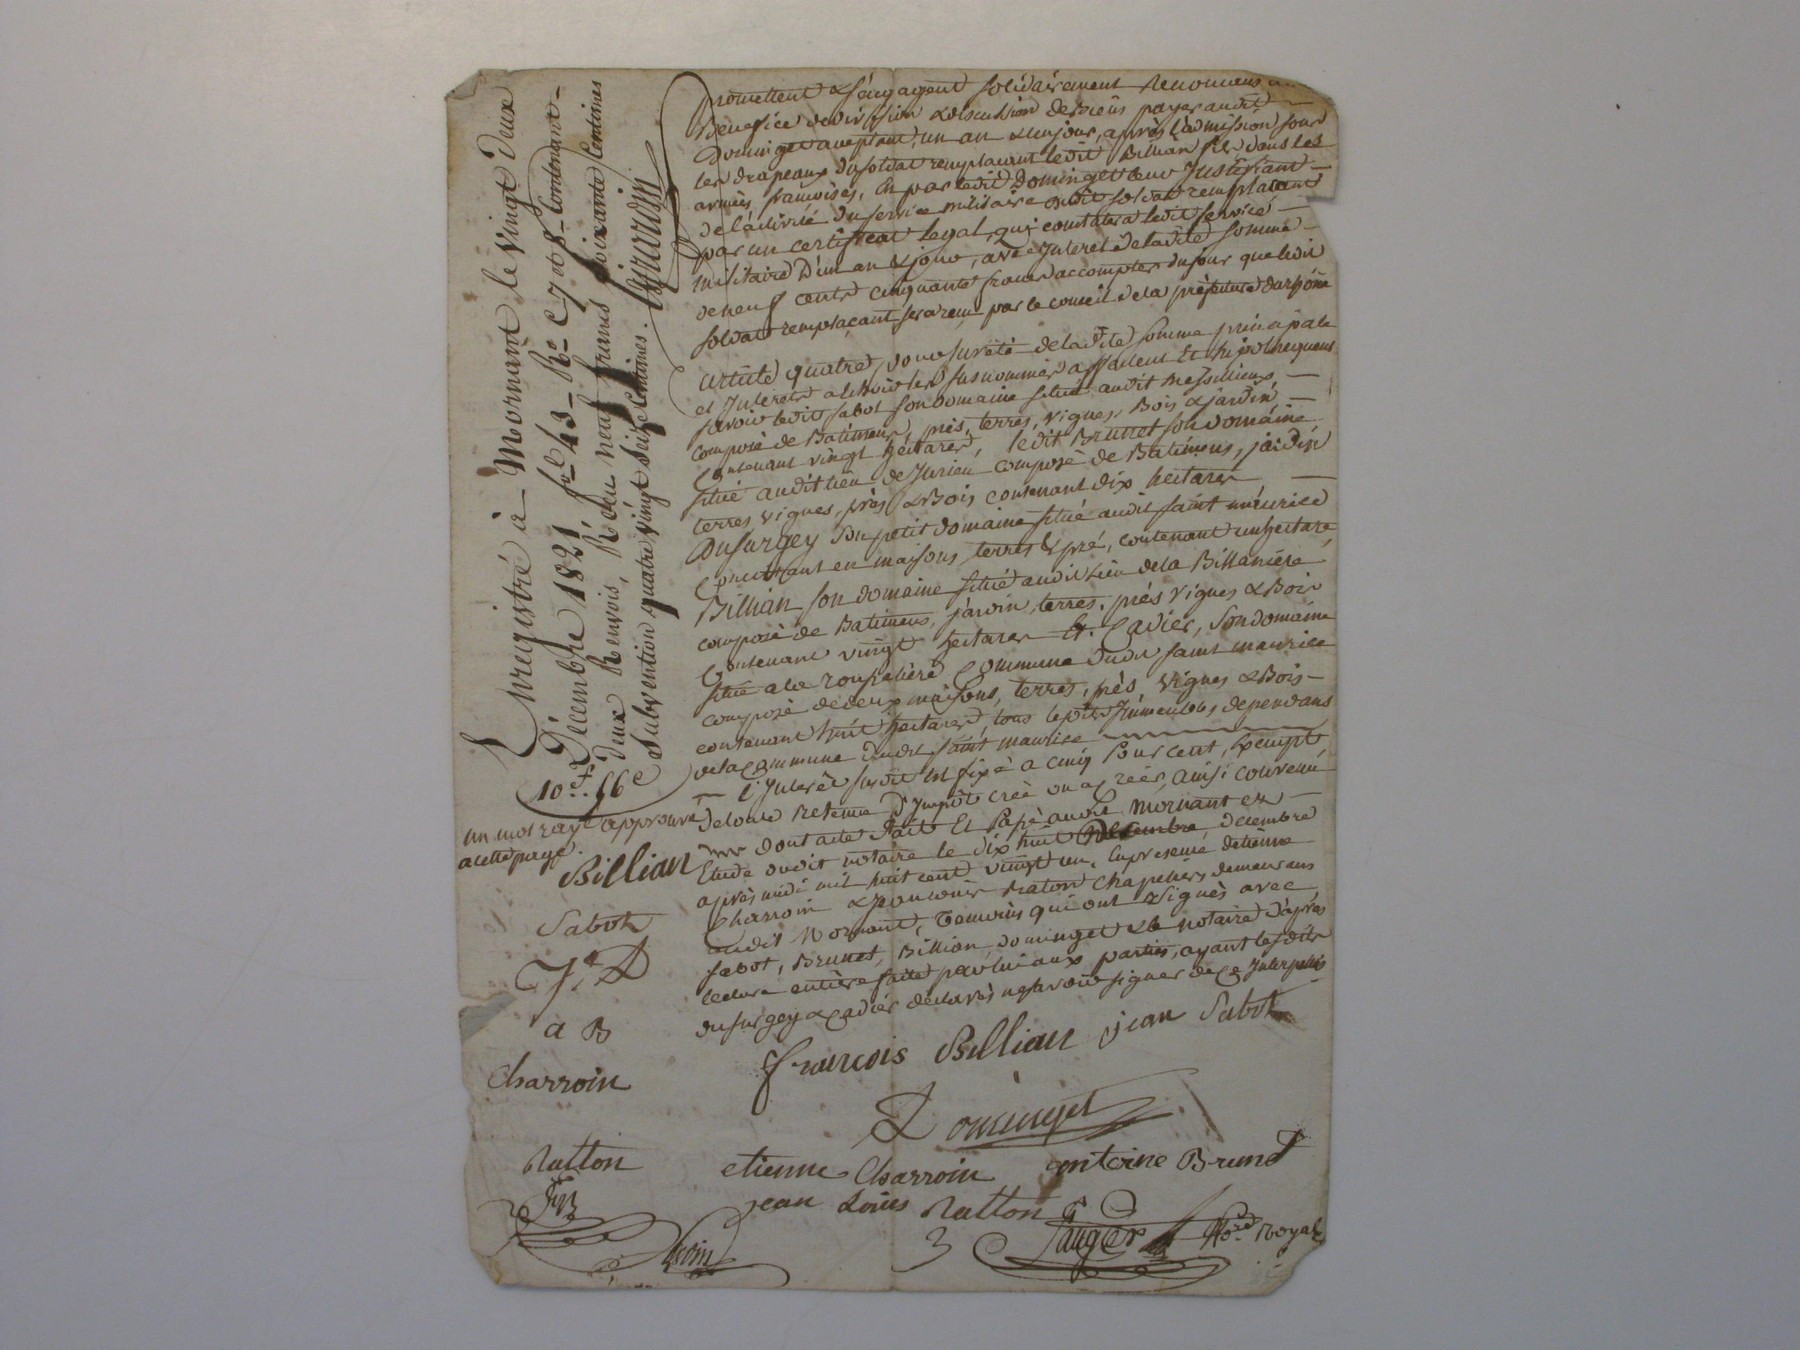 promettent & s'engagent solidairement Renoncens au
Benefice de division & discussion de Biens payer audit
Dominget acceptant, un an & un jour, après l'admission sous
les drapeaux du soldat remplacant ledit Billian fils dans les
armées françoises, En par ledit Dominget leur Justifiant
de l'activité du service militaire dudit soldat remplacant
par un certificat legal, qui constatera ledit service
militaire D'un an & jour, avec Interet de ladite somme
de neuf cents cinquante francs accompter du jour que ledit
soldat remplaçant sera reçu par le conseil de la préfecture du rhône
article quatre, pour sureté de ladite somme principale
et Interets alibvoir les susnommés affectent Et hypothequent
savoir ledit Sabot son domaine situé audit Messilieux,
composé de Batimens, près, terres, vignes, Bois & jardin,
Contenant vingt hectares, ledit Brunet son domaine
situé audit lieu de Jurieu composé de Batimens, jardin
terres, vignes, près & Bois contenant dix hectares
Dusurgey son petit domaine situé audit saint maurice
Consistant en maisons, terres & pré, contenant un hectare,
Billian son domaine situé audit Lieu de la Billanière
composé de Batimens, jardin, terres, près vignes & Bois
Contenant vingt hectares Et Cadier, son domaine
situé a la roussilière Commune dudit saint maurice
composé de deux maisons, terres, près, vignes & Bois
contenant huit hectares, tous lesdits Immeubles dependans
de la Commune dudit saint maurice
L'Interêt susdit est fixé a cinq Pour cent, Exempt
de toute Retenue d'Impôts créé ou a créer, ainsi convenu
dont acte Fait Et Passé audit Mornant en
Etude dudit notaire le dix huit decembre
après midi mil huit cent vingt un, En presence d'etienne
Charroin & jean Louis Ratton Chapeliers demeurans
audit Mornant, Temoins qui ont signés avec
Sabot, Brunet, Billian, dominget & le notaire d'après
lecture entière faite par lui aux parties, ayant lesdits
dusurgey & Cadier déclarés ne savoir signer de ce Interpellés
françois Billian jean Sabot
Dominget
etienne Charroin antoine Brunet
jean Louis Ratton
Laugier No.re Royal
3
Enregistré à Mornant le Vingt Deux
Décembre 1821 f.le 43 R.o C. 7 et 8 Contenant
deux Renvois, Reçu neuf francs Soixante Centimes
Subvention quatre vingt seize Centimes. Girardin
10.f 56.c
un mot rayé approuvé
a cette page.
Billian
Sabot
J. D
a B
Charroin
Ratton